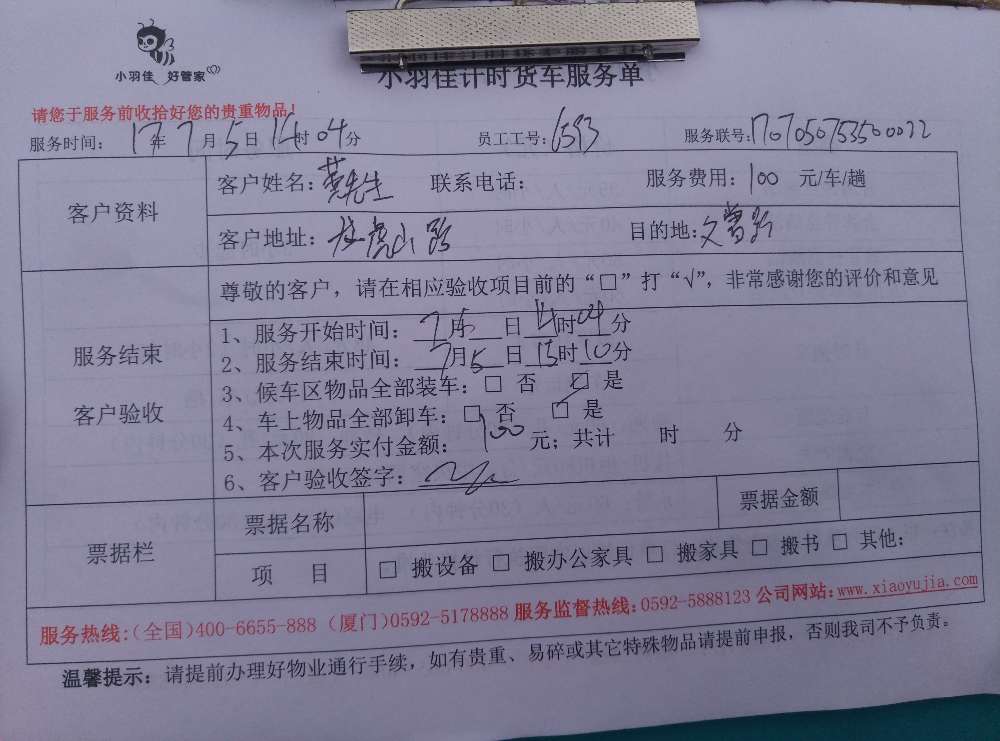 小羽佳 好管家
小羽佳计时货车服务单
请您于服务前收拾好您的贵重物品!
服务时间: 17年7月5日14时04分 员工工号:6593 服务联号:
客户资料
客户姓名:黄先生 联系电话: 服务费用:100 元/车/趟
客户地址:虎山路 目的地:文曾路
服务结束
客户验收
尊敬的客户,请在相应验收项目前的“□”打“√”,非常感谢您的评价和意见
1、服务开始时间: 7月5日14时04分
2、服务结束时间: 7月5日15时10分
3、候车区物品全部装车:□ 否 ☑ 是
4、车上物品全部卸车:□ 否 ☑ 是
5、本次服务实付金额: 100 元;共计 时 分
6、客户验收签字:
票据栏
票据名称 票据金额
项 目 □ 搬设备 □ 搬办公家具 □ 搬家具 □ 搬书 □ 其他:
服务热线:(全国)400-6655-888 (厦门)0592-5178888 服务监督热线:0592-5888123 公司网站:www.xiaoyujia.com
温馨提示:请提前办理好物业通行手续,如有贵重、易碎或其它特殊物品请提前申报,否则我司不予负责。